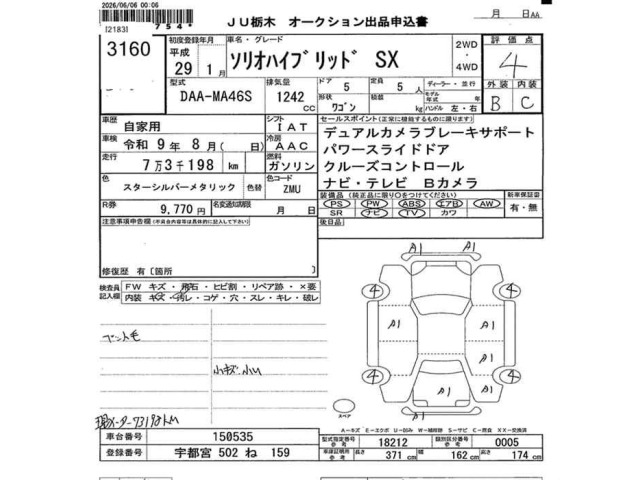 2026/06/06 00:06
J U 栃木 オークション出品申込書
月 日AA
[2183]
754*
3160
初度登録年月
平成
29 1 月
車名・グレード
ソリオハイブリッド SX
2WD
・
4WD
評価点
4
型式
DAA-MA46S
排気量
1242
CC
ドア
5
形状
ワゴン
定員
5 人
積載
kg
ディーラー・並行
モデル
年式 年
ハンドル 左・右
外装 内装
B C
車歴
自家用
シフト
I AT
セールスポイント(正常に機能するものに限ります)
デュアルカメラブレーキサポート
パワースライドドア
クルーズコントロール
ナビ・テレビ Bカメラ
車検
令和 9 年 8 月( 日)
冷房
AAC
走行
7 万 3 千 198 km
燃料
ガソリン
色
スターシルバーメタリック
色替
色コード
ZMU
装備品 (純正品に限り〇をつけてください)
PS PW ABS エアB AW
SR ナビ TV カワ
新車保証書
有・無
R券
9,770 円
名変通知期限
月 日
後日品
注意事項申告欄(不具合内容等は具体的に記入して下さい)
修復歴 有〔箇所 〕
検査員
記入欄
FW キズ・飛石・ヒビ割・リペア跡・×要
内装 キズ・汚レ・コゲ・穴・スレ・キレ・破レ
ペット毛
小キズ小U
現メーター73198KM
A1 A1
4 4
A1 A1
A1
4 4
A1
A1
スペア
A-キズ E-エクボ U-凹み W-補修跡 S-サビ C-腐食 XX-交換済
車台番号
150535
型式指定番号
参考
18212
類別区分番号
参考
0005
登録番号
宇都宮 502 ね 159
車庫証明
参考
長さ
371 cm
幅
162 cm
高さ
174 cm